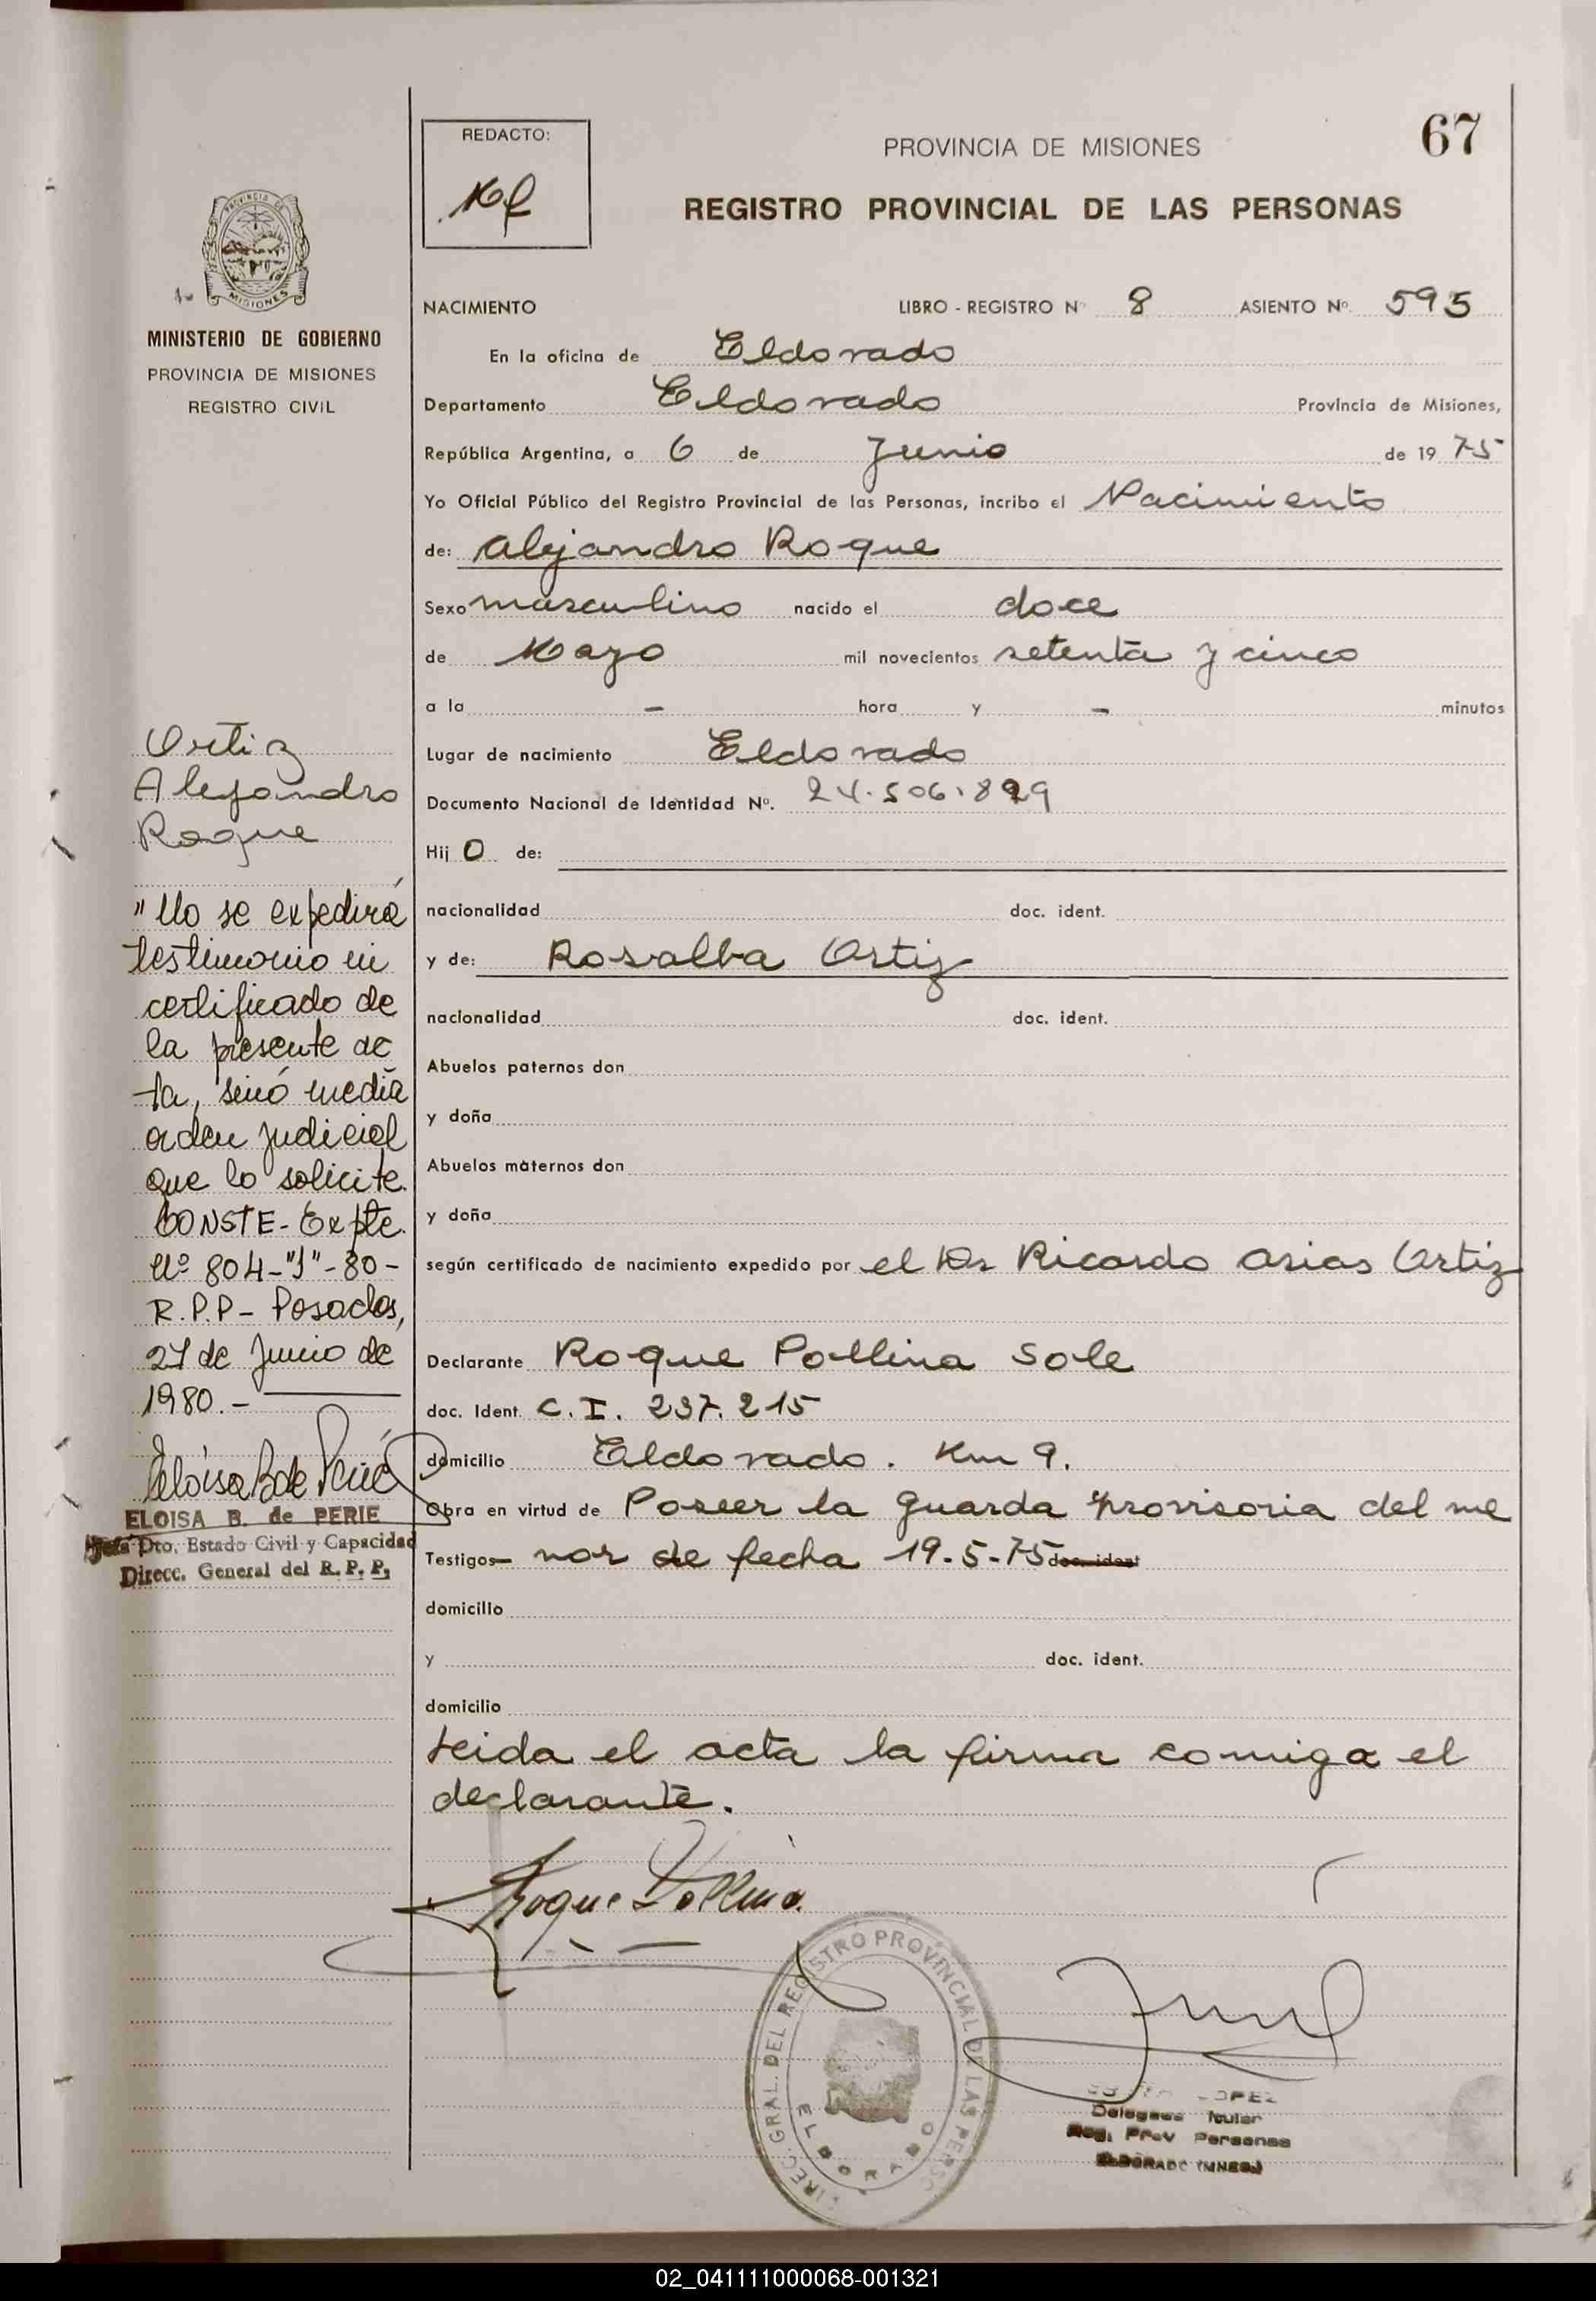 67
REDACTO:
PROVINCIA DE MISIONES
REGISTRO PROVINCIAL DE LAS PERSONAS
PROVINCIA DE
MISIONES
MINISTERIO DE GOBIERNO
PROVINCIA DE MISIONES
REGISTRO CIVIL
NACIMIENTO LIBRO - REGISTRO Nº 8 ASIENTO Nº. 595
En la oficina de Eldorado
Departamento Eldorado Provincia de Misiones,
República Argentina, a 6 de Junio de 19 75
Yo Oficial Público del Registro Provincial de las Personas, incribo el Nacimiento
de: Alejandro Roque
Sexo masculino nacido el doce
de Mayo mil novecientos setenta y cinco
a la - hora y - minutos
Lugar de nacimiento Eldorado
Documento Nacional de Identidad Nº. 24.506.829
Hij o de:
nacionalidad doc. ident.
y de: Rosalba Ortiz
nacionalidad doc. ident.
Abuelos paternos don
y doña
Abuelos maternos don
y doña
según certificado de nacimiento expedido por el Dr Ricardo Arias Ortiz
Declarante Roque Pollina Sole
doc. Ident. C.I. 237.215
domicilio Eldorado. Km 9.
Obra en virtud de Poseer la guarda provisoria del me
Testigos nor de fecha 19-5-75 doc. ident
domicilio
y doc. ident.
domicilio
Leida el acta la firma comigo el
declarante.
Roque Pollina
DIREC. GRAL. DEL REGISTRO PROVINCIAL DE LAS PERSO
ELDORADO
LOPEZ
Delegado Titular
Reg. Prov Personas
ELDORADO (MNES.)
Ortiz
Alejandro
Roque
"No se expedirá
testimonio ni
certificado de
la presente ac
ta, sinó media
orden judicial
que lo solicite.
CONSTE- Expte.
Nº 804-"J"-80-
R.P.P- Posadas,
27 de Junio de
1980.-
Eloisa B de Perié
ELOISA B. de PERIE
Jefa Dto. Estado Civil y Capacidad
Direcc. General del R. P. P.
02_041111000068-001321